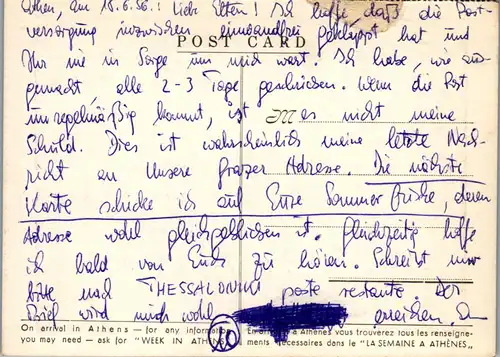 Athen, am 18.6.56.! Liebe Eltern! Ich hoffe, daß die Post-
versorgung inzwischen einwandfrei geklappt hat und
POST CARD
Ihr nie in Sorge um mich wart. Ich habe, wie aus-
gemacht, alle 2-3 Tage geschrieben. Wenn die Post
unregelmäßig kommt, ist es nicht meine
Schuld. Dies ist wahrscheinlich meine letzte Nach-
richt an Unsere Grazer Adresse. Die nächste
Karte schicke ich auf Eure Sommerfrische, deren
Adresse wohl gleichgeblieben ist. Gleichzeitig hoffe
ich bald von Euch zu hören. Schreibt mir
bitte nach THESSALONIKI poste restante. Der
Brief wird mich wohl erreichen.
On arrival in Athens — for any information
you may need — ask for "WEEK IN ATHENS"
En arrivant à Athènes vous trouverez tous les renseigne-
ments nécessaires dans le "LA SEMAINE A ATHÈNES"